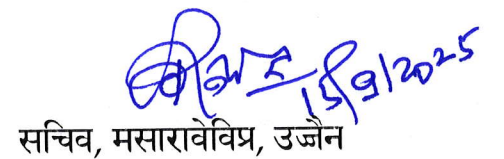 15/9/2025
सचिव, मसारावेविप्र, उज्जैन